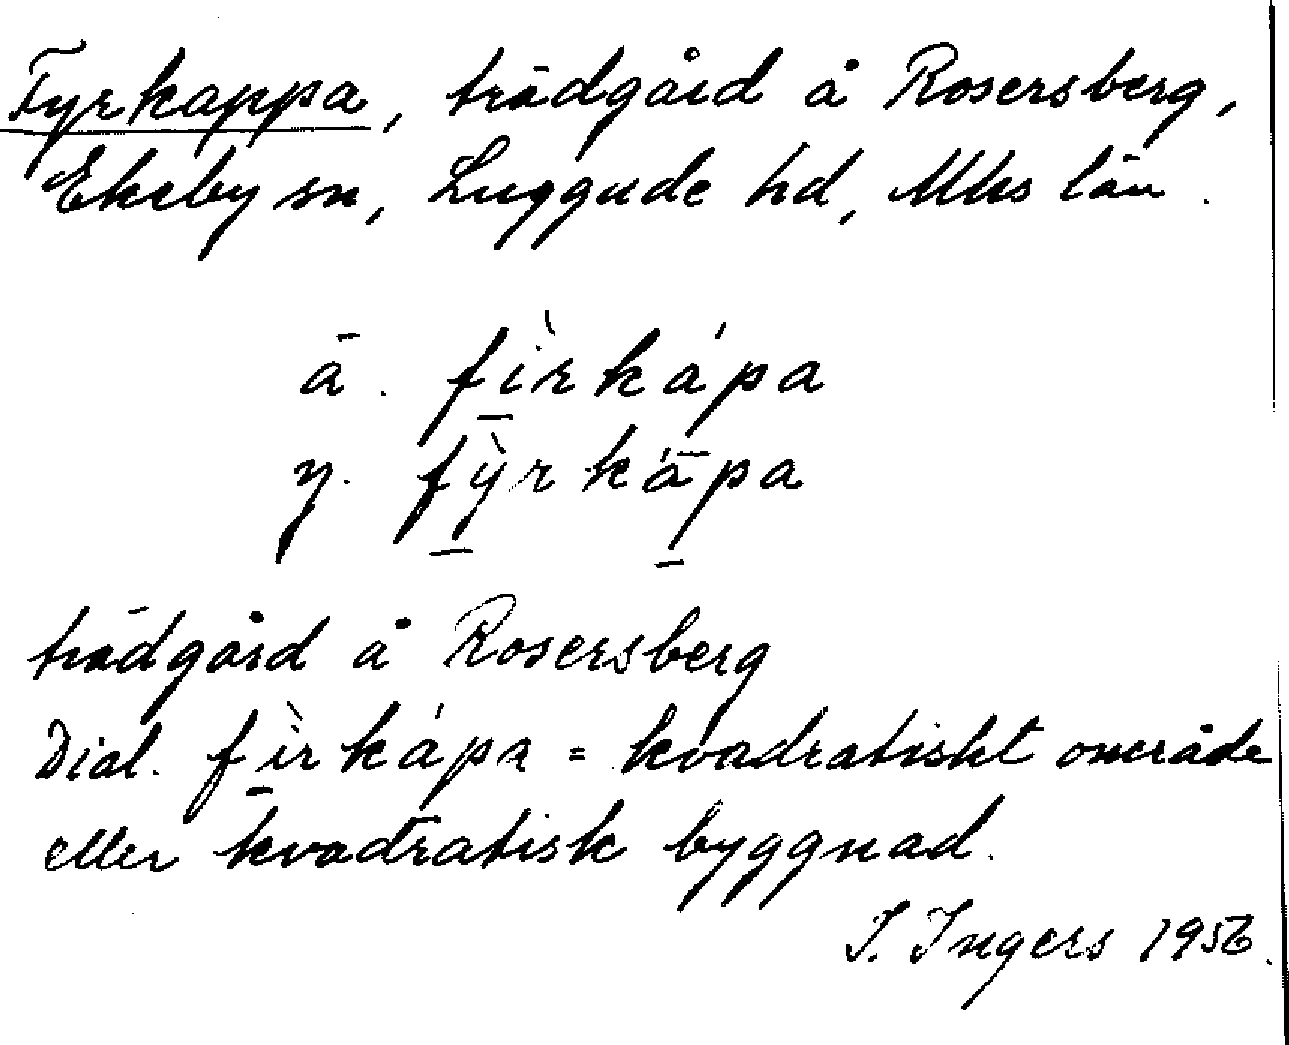 Fyrkappa, trädgård å Rosersberg,
Ekeby sn, Luggude hd, Mlhs län.
ä. fìrkápa
y. fỳrkápa
trädgård å Rosersberg
Dial. fìrkápa = kvadratiskt område
eller kvadratisk byggnad.
I. Ingers 1956.